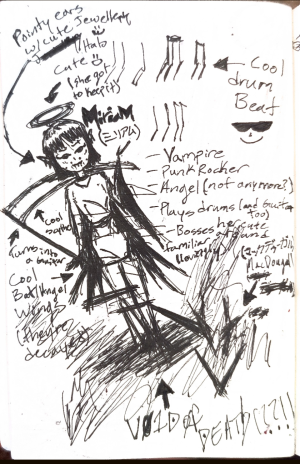 Pointy ears
w/ cute Jewellery
Halo
Cute
(she got
to keep it)
MiriaM
(ミリアム)
Cool
drum
Beat
Vampire
Punk Rocker
Angel (not anymore?)
Plays drums (and Guitar
too)
Bosses her cute
familiar around
(lovingly)
MacDougal
Cool
Turns into
a Guitar
Cool
Bat/Angel
Wings
(they're
decayed)
VOID OF DEATH (??!!)